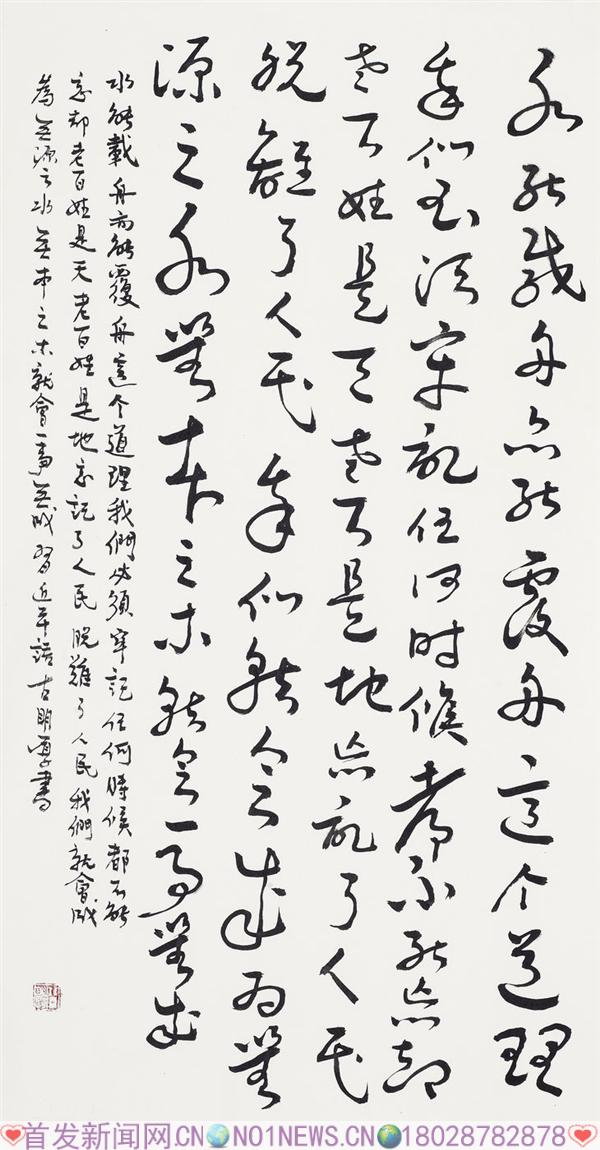 水能載舟亦能覆舟這个道理
我们必須牢記任何时候都不能忘却
老百姓是天老百姓是地忘記了人民
脱離了人民我们就会成为無
源之水無本之木就会一事無成
水能載舟亦能覆舟這个道理我們必須牢記任何時候都不能
忘却老百姓是天老百姓是地忘記了人民脱離了人民我們就會成
為無源之水無本之木就會一事無成習近平語古明學書
首发新闻网.CN NO1NEWS.CN 18028782878